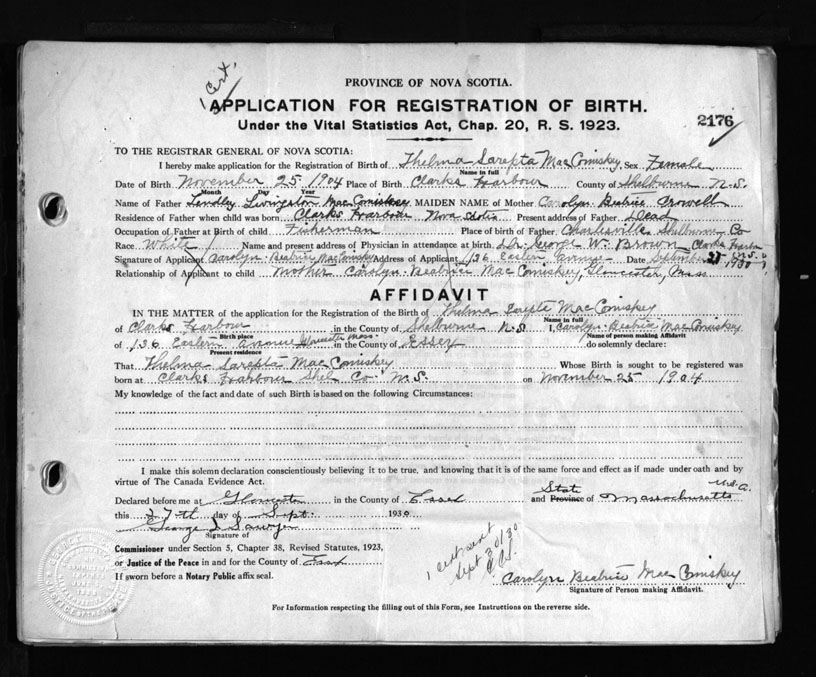 1 cert.
PROVINCE OF NOVA SCOTIA.
APPLICATION FOR REGISTRATION OF BIRTH.
Under the Vital Statistics Act, Chap. 20, R. S. 1923.
2176
TO THE REGISTRAR GENERAL OF NOVA SCOTIA:
I hereby make application for the Registration of Birth of Thelma Sarepta MacComiskey Sex Female
Name in full
Date of Birth November 25 1904 Place of Birth Clarks Harbour County of Shelburne N.S.
Month Day Year
Name of Father Lendley Livingston MacComiskey MAIDEN NAME of Mother Carolyn Beatrice Crowell
Residence of Father when child was born Clarks Harbour Nova Scotia Present address of Father Dead
Occupation of Father at Birth of child Fisherman Place of birth of Father Charlesville Shelburne Co
Race White Name and present address of Physician in attendance at birth Dr. George W. Brown Clarks Harbor N.S.
Signature of Applicant Carolyn Beatrice MacComiskey Address of Applicant 136 Eastern Avenue Date September 25 1930
Relationship of Applicant to child Mother Carolyn Beatrice MacComiskey, Gloucester, Mass
AFFIDAVIT
IN THE MATTER of the application for the Registration of the Birth of Thelma Sarepta MacComiskey
Name in full
of Clarks Harbour in the County of Shelburne N.S. I, Carolyn Beatrice MacComiskey
Birth place Name of person making Affidavit
of 136 Eastern Avenue Gloucester Mass. in the County of Essex do solemnly declare:
Present residence
That Thelma Sarepta MacComiskey Whose Birth is sought to be registered was
born at Clarks Harbour Shel Co N.S. on November 25 1904
My knowledge of the fact and date of such Birth is based on the following Circumstances:
I make this solemn declaration conscientiously believing it to be true, and knowing that it is of the same force and effect as if made under oath and by
virtue of The Canada Evidence Act.
Declared before me at Gloucester in the County of Essex and Province State of Massachusetts U.S.A.
this 27th day of Sept. 1930
George L Sawyer
Signature of
Commissioner under Section 5, Chapter 38, Revised Statutes, 1923,
or Justice of the Peace in and for the County of Essex
If sworn before a Notary Public affix seal.
1 cert sent
Sept 30/30
Carolyn Beatrice MacComiskey
Signature of Person making Affidavit.
For Information respecting the filling out of this Form, see Instructions on the reverse side.